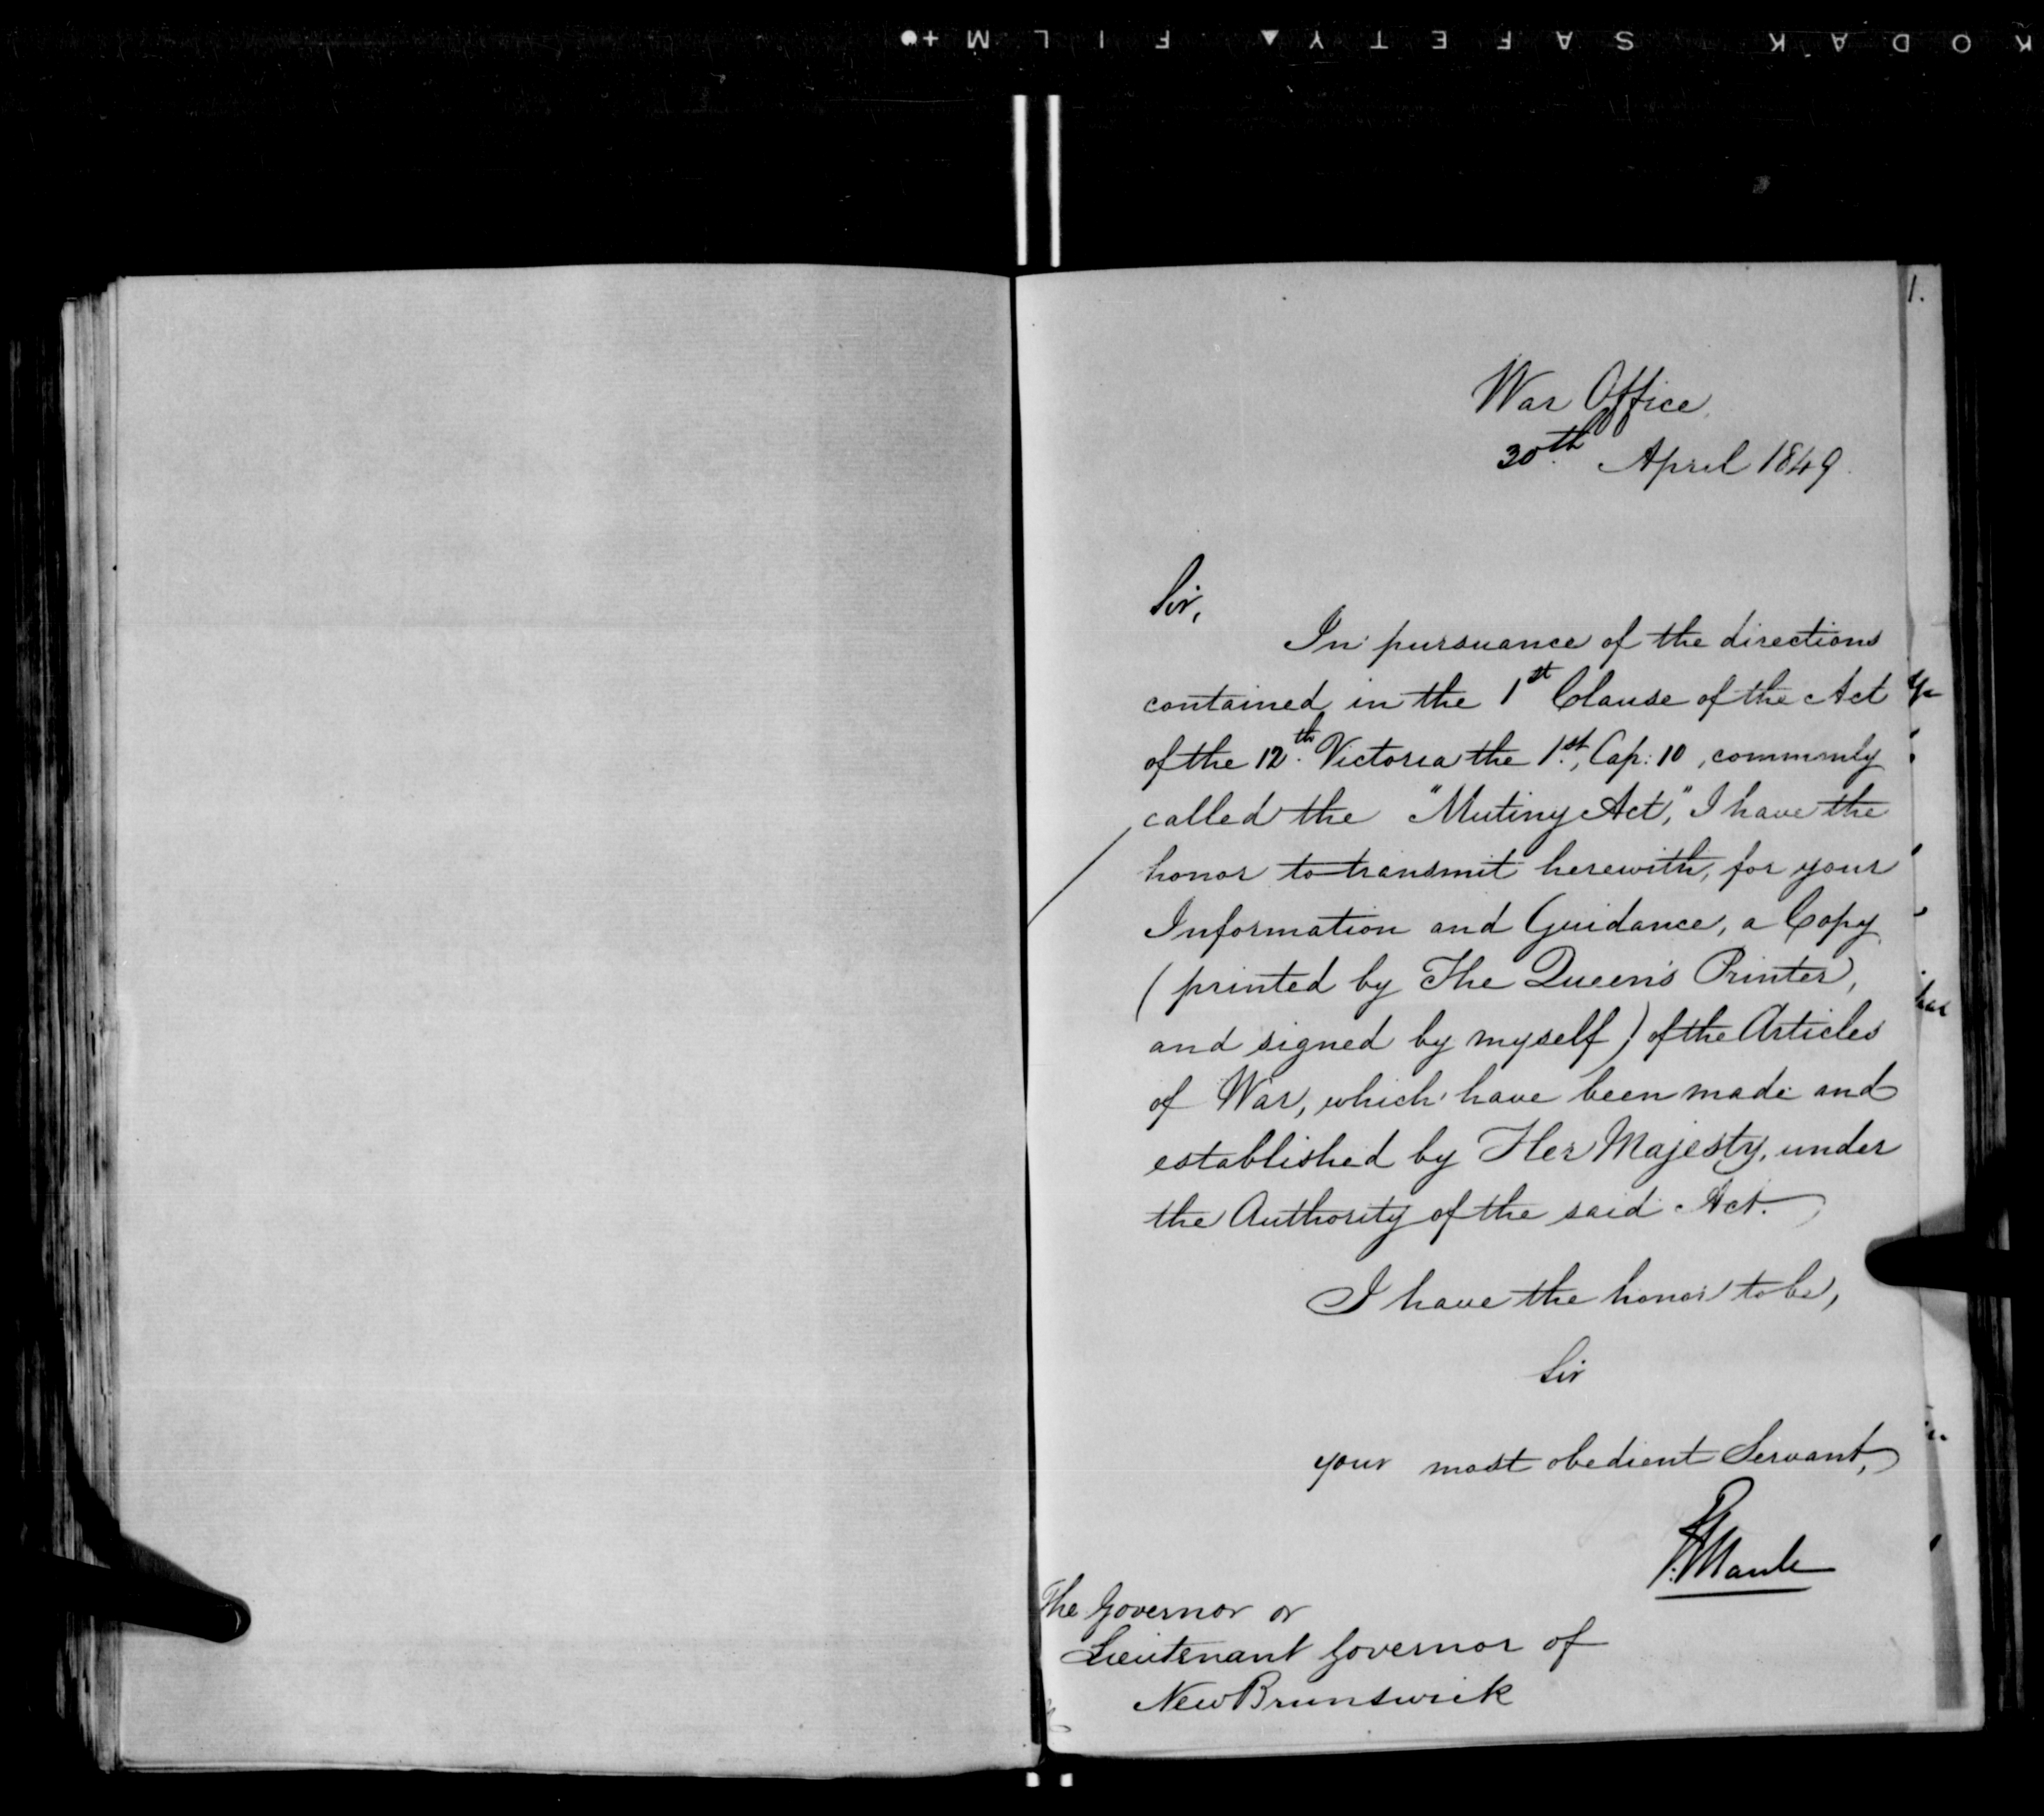 KODAK SAFETY ▲ FILM +●
1.
War Office,
30th April 1849.
Sir,
In pursuance of the directions
contained in the 1st Clause of the Act
of the 12th Victoria the 1st, Cap: 10, commonly
called the "Mutiny Act," I have the
honor to transmit herewith, for your
Information and Guidance, a Copy
(printed by The Queen's Printer,
and signed by myself) of the Articles
of War, which have been made and
established by Her Majesty, under
the Authority of the said Act.
I have the honor to be,
Sir
your most obedient Servant,
F Maule
The Governor or
Lieutenant Governor of
New Brunswick